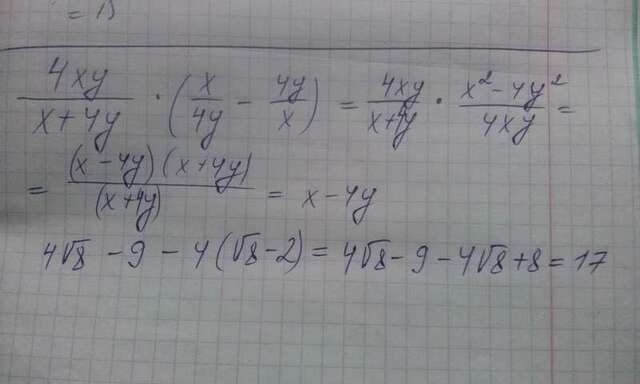 = 13
4xy/(x+4y) · (x/4y − 4y/x) = 4xy/(x+4y) · (x² − 4y²)/4xy =
= (x − 4y)(x + 4y)/(x+4y) = x − 4y
4√8 − 9 − 4(√8 − 2) = 4√8 − 9 − 4√8 + 8 = 17